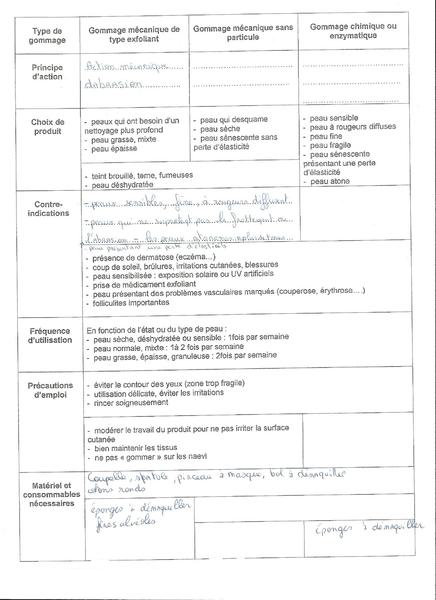 Type de gommage
Gommage mécanique de type exfoliant
Gommage mécanique sans particule
Gommage chimique ou enzymatique
Principe d'action
Action mécanique
d'abrasion
Choix de produit
- peaux qui ont besoin d'un nettoyage plus profond
- peau grasse, mixte
- peau épaisse
- peau qui desquame
- peau sèche
- peau sénescente sans perte d'élasticité
- peau sensible
- peau à rougeurs diffuses
- peau fine
- peau fragile
- peau sénescente présentant une perte d'élasticité
- peau atone
- teint brouillé, terne, fumeuses
- peau déshydratée
Contre-indications
- peaux sensibles, fine, à rougeurs diffuses
- peaux qui ne supportent pas le frottement ou
l'abrasion - les peaux atones
peau présentant une perte d'élasticité
- présence de dermatose (eczéma...)
- coup de soleil, brûlures, irritations cutanées, blessures
- peau sensibilisée : exposition solaire ou UV artificiels
- prise de médicament exfoliant
- peau présentant des problèmes vasculaires marqués (couperose, érythrose....)
- folliculites importantes
Fréquence d'utilisation
En fonction de l'état ou du type de peau :
- peau sèche, déshydratée ou sensible : 1fois par semaine
- peau normale, mixte : 1à 2 fois par semaine
- peau grasse, épaisse, granuleuse : 2fois par semaine
Précautions d'emploi
- éviter le contour des yeux (zone trop fragile)
- utilisation délicate, éviter les irritations
- rincer soigneusement
- modérer le travail du produit pour ne pas irriter la surface cutanée
- bien maintenir les tissus
- ne pas « gommer » sur les naevi
Matériel et consommables nécessaires
Coupelle, spatule, pinceau à masque, bol à démaquiller
cotons ronds
éponges à démaquiller
éponges à démaquiller